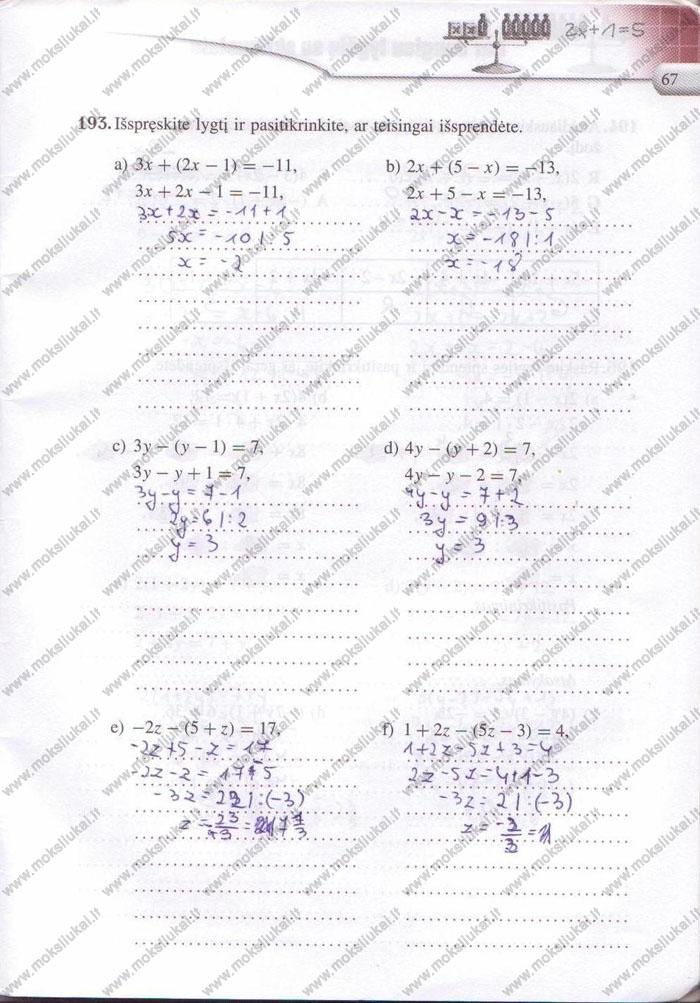 2x+1=5
67
193. Išspręskite lygtį ir pasitikrinkite, ar teisingai išsprendėte.
a) 3x + (2x − 1) = −11,
3x + 2x − 1 = −11,
3x+2x = -11+1
5x = -10 | : 5
x = -2
b) 2x + (5 − x) = −13,
2x + 5 − x = −13,
2x-x = -13-5
x = -18 | : 1
x = -18
c) 3y − (y − 1) = 7,
3y − y + 1 = 7,
3y-y = 7-1
2y=6 | : 2
y = 3
d) 4y − (y + 2) = 7,
4y − y − 2 = 7,
4y-y = 7+2
3y = 9 | : 3
y = 3
e) −2z − (5 + z) = 17,
-2z+5-z = 17
-2z-z = 17+5
-3z = 22 | : (-3)
f) 1 + 2z − (5z − 3) = 4,
1+2z-5z+3=4
2z-5z=4+1-3
-3z = 2 | : (-3)
www.moksliukai.lt